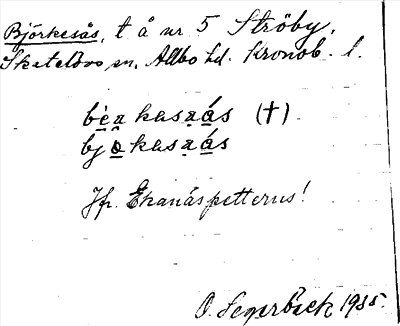 Björkesås, t å nr 5 Ströby,
Skatelövs sn, Allbo hd. Kronob. l.
bè̱a̱ kasa̱á̱s (†)
bjo̱ kasa̱á̱s
Jfr. Ekanäspetterus!
O. Segerbäck 1935.